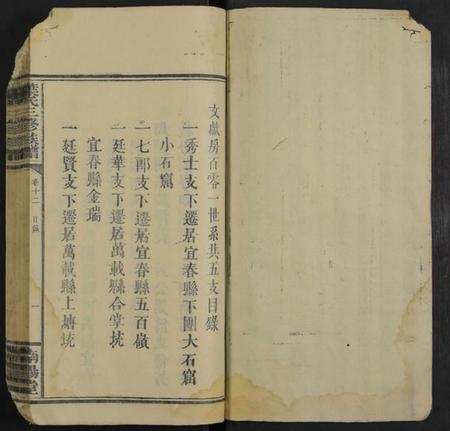 文獻房百零一世系共五支目錄
一秀士支下遷居宜春縣下團大石窩
小石窩
一七郎支下遷居宜春縣五百嶺
一廷華支下遷居萬載縣合掌坑
宜春縣金瑞
一廷賢支下遷居萬載縣上塘坑
葉氏三修族譜
卷十二
目錄
一
南陽堂